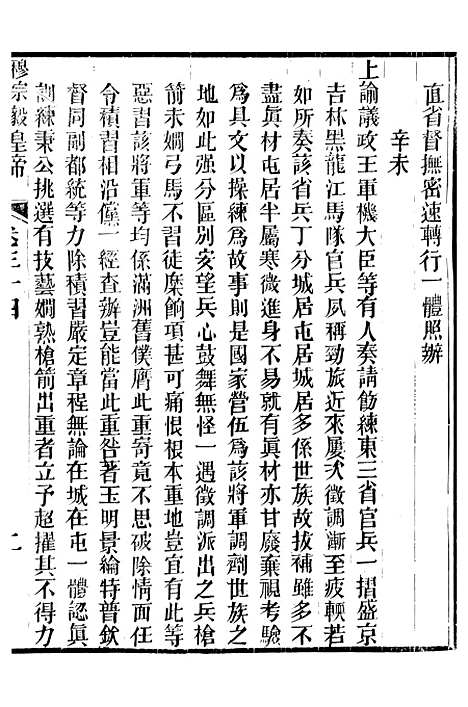 直省督撫密速轉行一體照辦
辛未
上諭議政王軍機大臣等有人奏請飭練東三省官兵一摺盛京
吉林黑龍江馬隊官兵夙稱勁旅近來屢次徵調漸至疲輭若
如所奏該省兵丁分城居屯居城居多係世族故拔補雖多不
盡眞材屯居半屬寒微進身就有眞材亦甘廢棄視考驗
爲具文以操練爲故事則是國家營伍爲該將軍調劑世族之
地如此强分區別安望兵心鼓舞無怪一遇徵調派出之兵槍
箭未嫺弓馬不習徒糜餉項可痛恨根本重地豈宜有此等
惡習該將軍等均係滿洲舊僕膺此重寄竟不思破除情面任
令積習相沿僅一經查辦豈能當此重咎著玉明景綸特普欽
督同副都統等力除積習嚴定章程無論在城在屯一體認眞
訓練秉公挑選有技藝嫺熟槍箭出重者立予超擢其不得力
穆宗毅皇帝 卷三十四 二